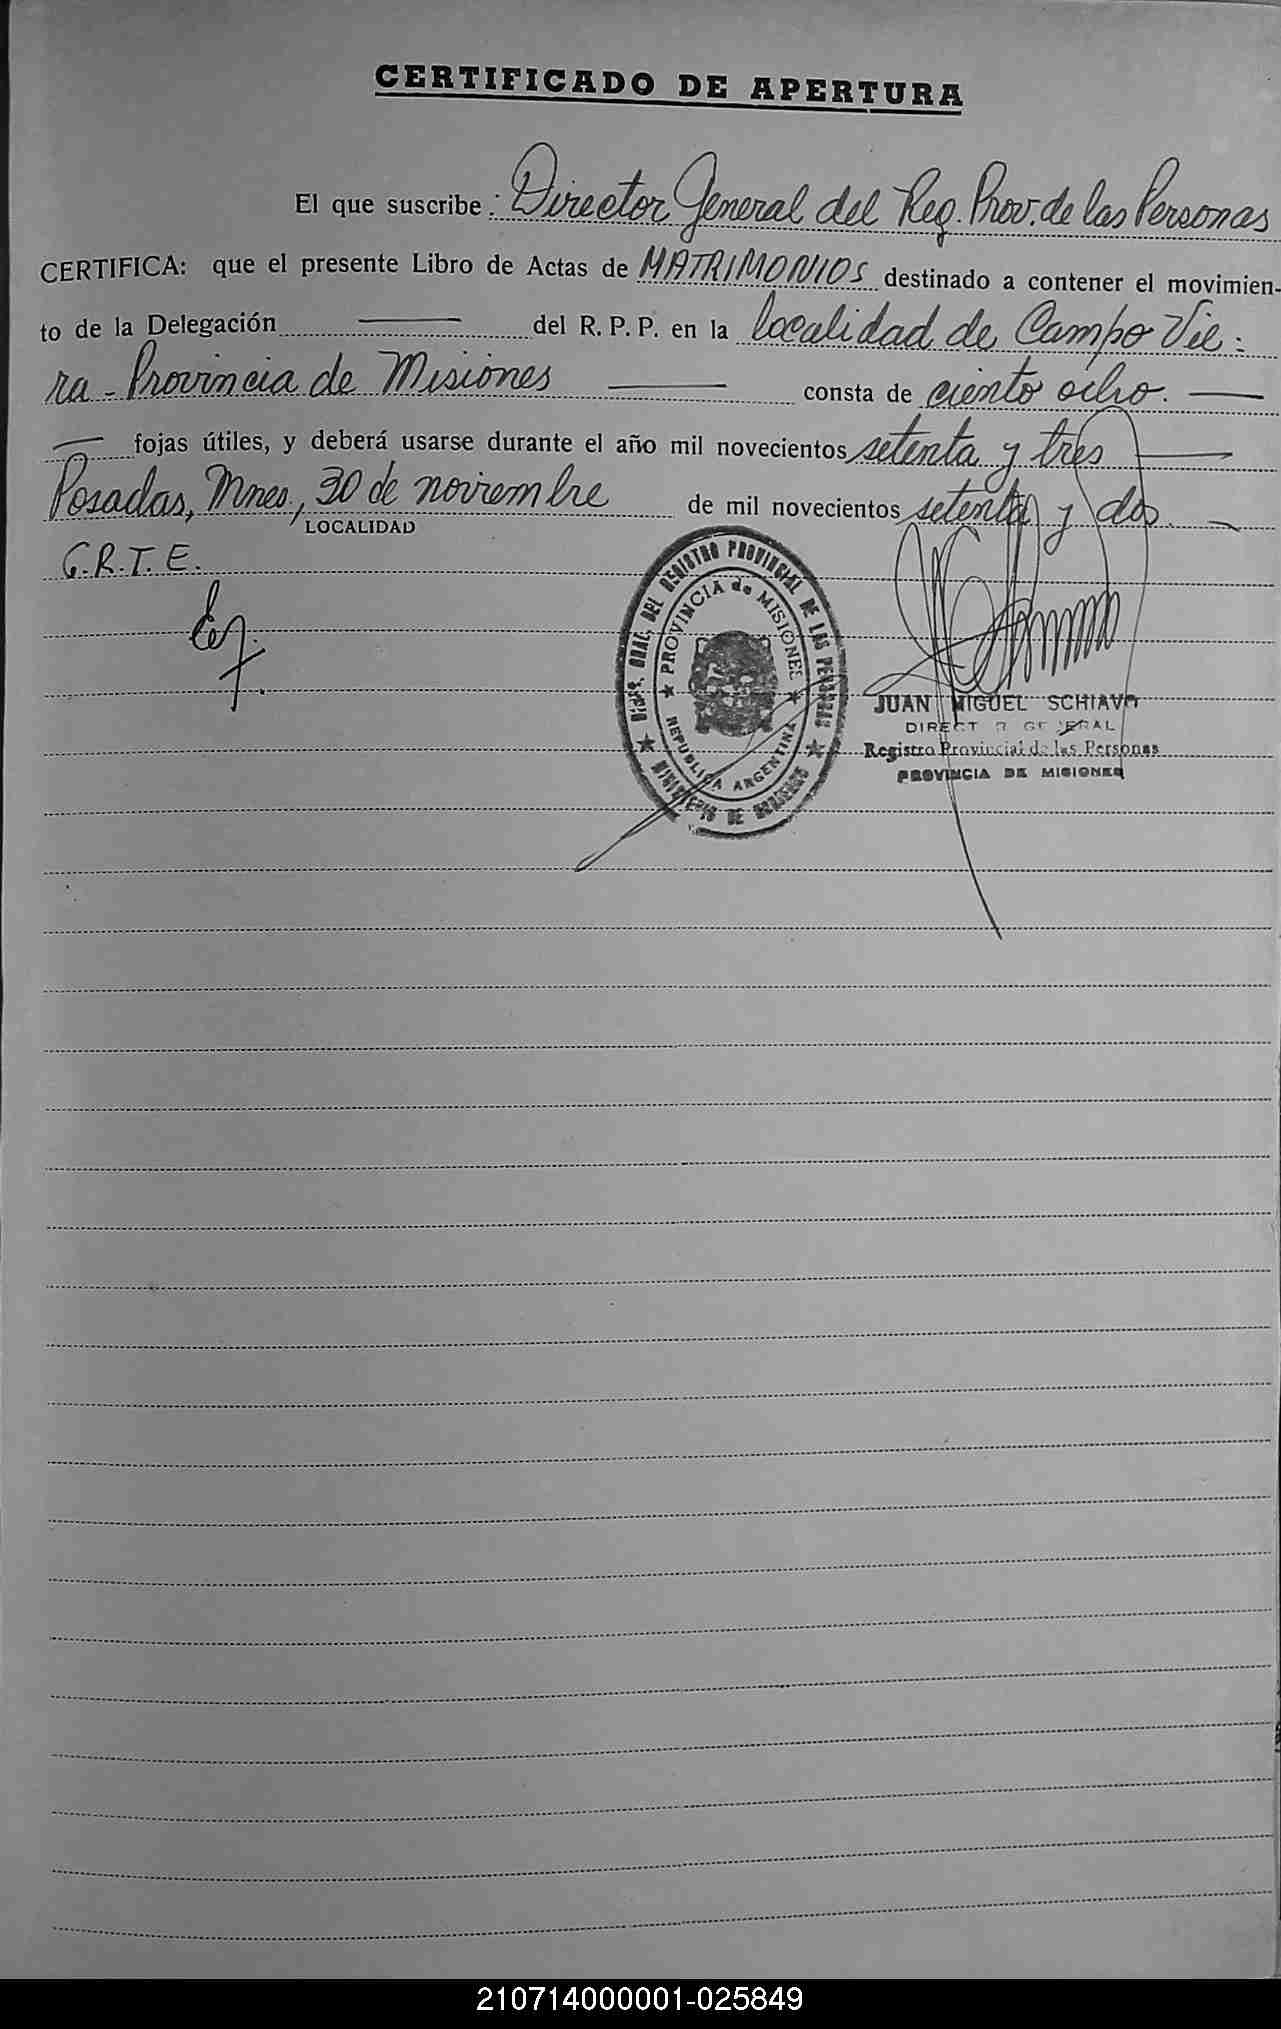 CERTIFICADO DE APERTURA
El que suscribe: Director General del Reg. Prov. de las Personas
CERTIFICA: que el presente Libro de Actas de MATRIMONIOS destinado a contener el movimien-
to de la Delegación del R. P. P. en la localidad de Campo Vie=
ra - Provincia de Misiones consta de ciento ocho.
fojas útiles, y deberá usarse durante el año mil novecientos setenta y tres
Posadas, Mnes., 30 de noviembre de mil novecientos setenta y dos.
LOCALIDAD
G.R.T.E.
DIREC. GRAL. DEL REGISTRO PROVINCIAL DE LAS PERSONAS
PROVINCIA de MISIONES
REPUBLICA ARGENTINA
MINISTERIO DE GOBIERNO
JUAN MIGUEL SCHIAVO
DIRECTOR GENERAL
Registro Provincial de las Personas
PROVINCIA DE MISIONES
210714000001-025849